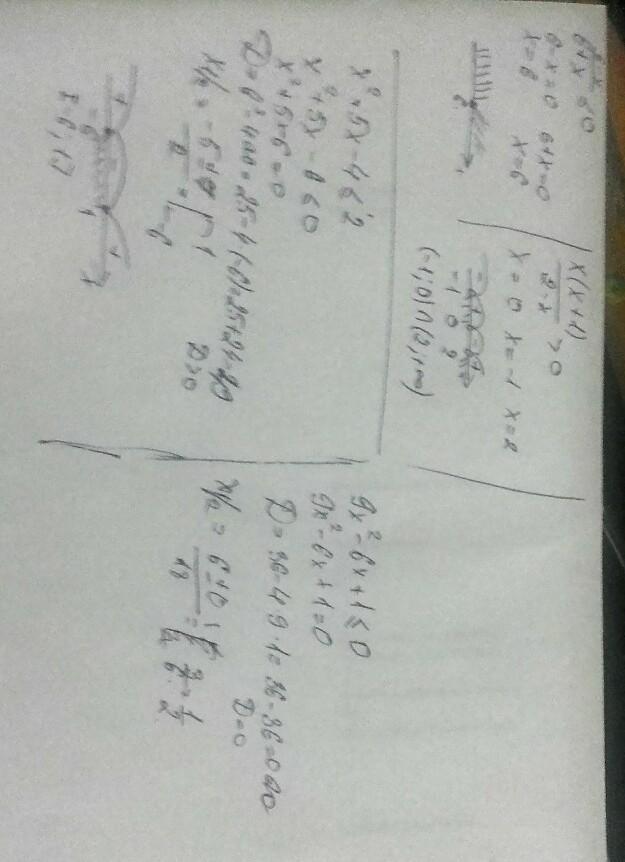 6+x ≤ 0
6-x=0 6+x=0
x=6 x=6
6
x(x+1)
2-x > 0
x=0 x=-1 x=2
-1 0 2
(-1;0)∩(2;+∞)
x²+5x-4 ≤ 2
x²+5x-6 ≤ 0
x²+5x-6=0
D=b²-4ac=25-4(-6)=25+24=49
D>0
x1/2 = -5±7
2 = 1
-6
-6 1 x
[-6;1]
9x²-6x+1 ≤ 0
9x²-6x+1=0
D=36-4·9·1=36-36=0
D=0
x1/2 = 6±0
18 =